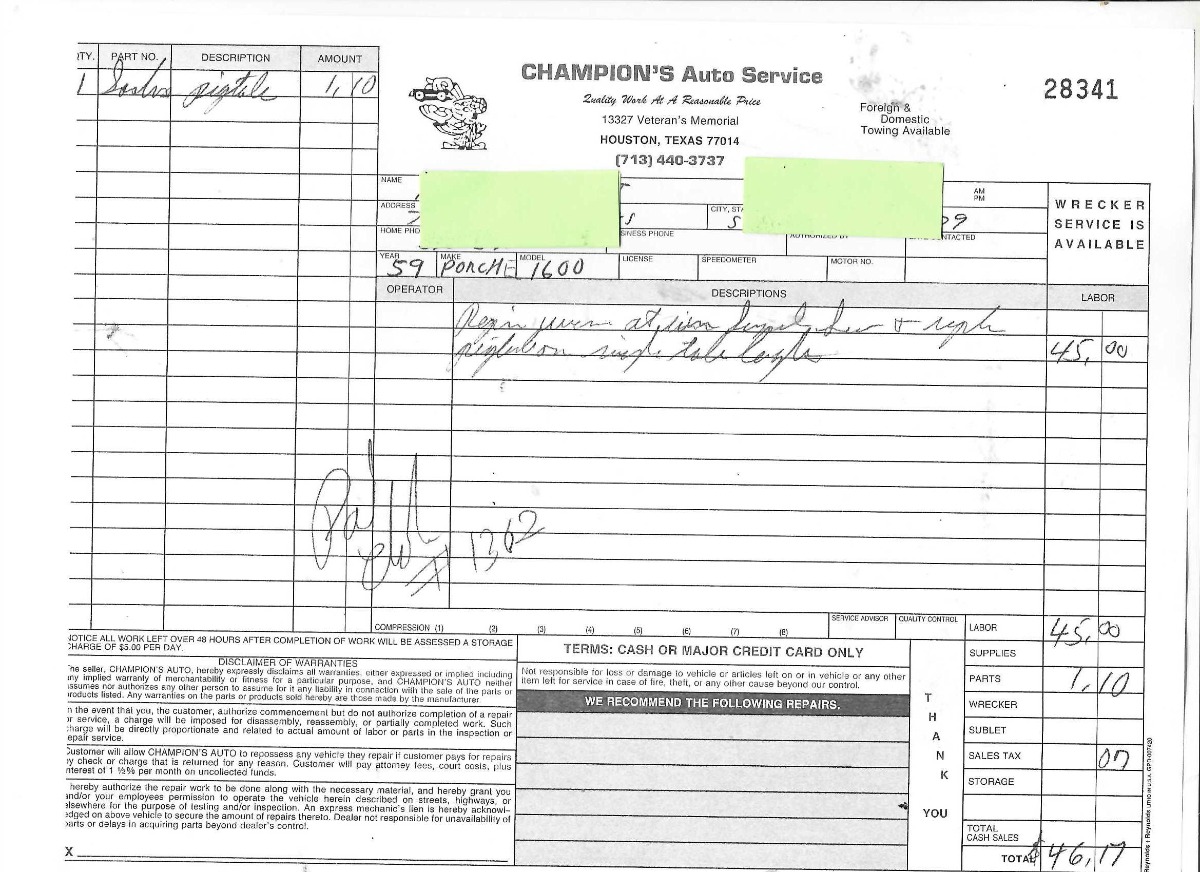 QTY. PART NO. DESCRIPTION AMOUNT
1 pigtale 1,10
CHAMPION'S Auto Service
Quality Work At A Reasonable Price
13327 Veteran's Memorial
HOUSTON, TEXAS 77014
(713) 440-3737
Foreign &
Domestic
Towing Available
28341
NAME
AM
PM
ADDRESS CITY, STA
HOME PHO SINESS PHONE AUTHORIZED BY CONTACTED
WRECKER
SERVICE IS
AVAILABLE
YEAR MAKE MODEL LICENSE SPEEDOMETER MOTOR NO.
59 PORCHE 1600
OPERATOR DESCRIPTIONS LABOR
at &
45,00
Paid
# 1362
COMPRESSION (1) (2) (3) (4) (5) (6) (7) (8) SERVICE ADVISOR QUALITY CONTROL
NOTICE ALL WORK LEFT OVER 48 HOURS AFTER COMPLETION OF WORK WILL BE ASSESSED A STORAGE
CHARGE OF $5.00 PER DAY.
DISCLAIMER OF WARRANTIES
The seller, CHAMPION'S AUTO, hereby expressly disclaims all warranties, either expressed or implied including
any implied warranty of merchantability or fitness for a particular purpose, and CHAMPION'S AUTO neither
assumes nor authorizes any other person to assume for it any liability in connection with the sale of the parts or
products listed. Any warranties on the parts or products sold hereby are those made by the manufacturer
In the event that you, the customer, authorize commencement but do not authorize completion of a repair
or service, a charge will be imposed for disassembly, reassembly, or partially completed work. Such
charge will be directly proportionate and related to actual amount of labor or parts in the inspection or
repair service.
Customer will allow CHAMPION'S AUTO to repossess any vehicle they repair if customer pays for repairs
by check or charge that is returned for any reason. Customer will pay attorney fees, court costs, plus
interest of 1 ½% per month on uncollected funds.
I hereby authorize the repair work to be done along with the necessary material, and hereby grant you
and/or your employees permission to operate the vehicle herein described on streets, highways, or
elsewhere for the purpose of testing and/or inspection. An express mechanic's lien is hereby acknowl-
edged on above vehicle to secure the amount of repairs thereto. Dealer not responsible for unavailability of
parts or delays in acquiring parts beyond dealer's control.
X
TERMS: CASH OR MAJOR CREDIT CARD ONLY
Not responsible for loss or damage to vehicle or articles left on or in vehicle or any other
item left for service in case of fire, theft, or any other cause beyond our control.
WE RECOMMEND THE FOLLOWING REPAIRS.
THANK
YOU
LABOR 45,00
SUPPLIES
PARTS 1,10
WRECKER
SUBLET
SALES TAX 07
STORAGE
TOTAL
CASH SALES
TOTAL $46,17